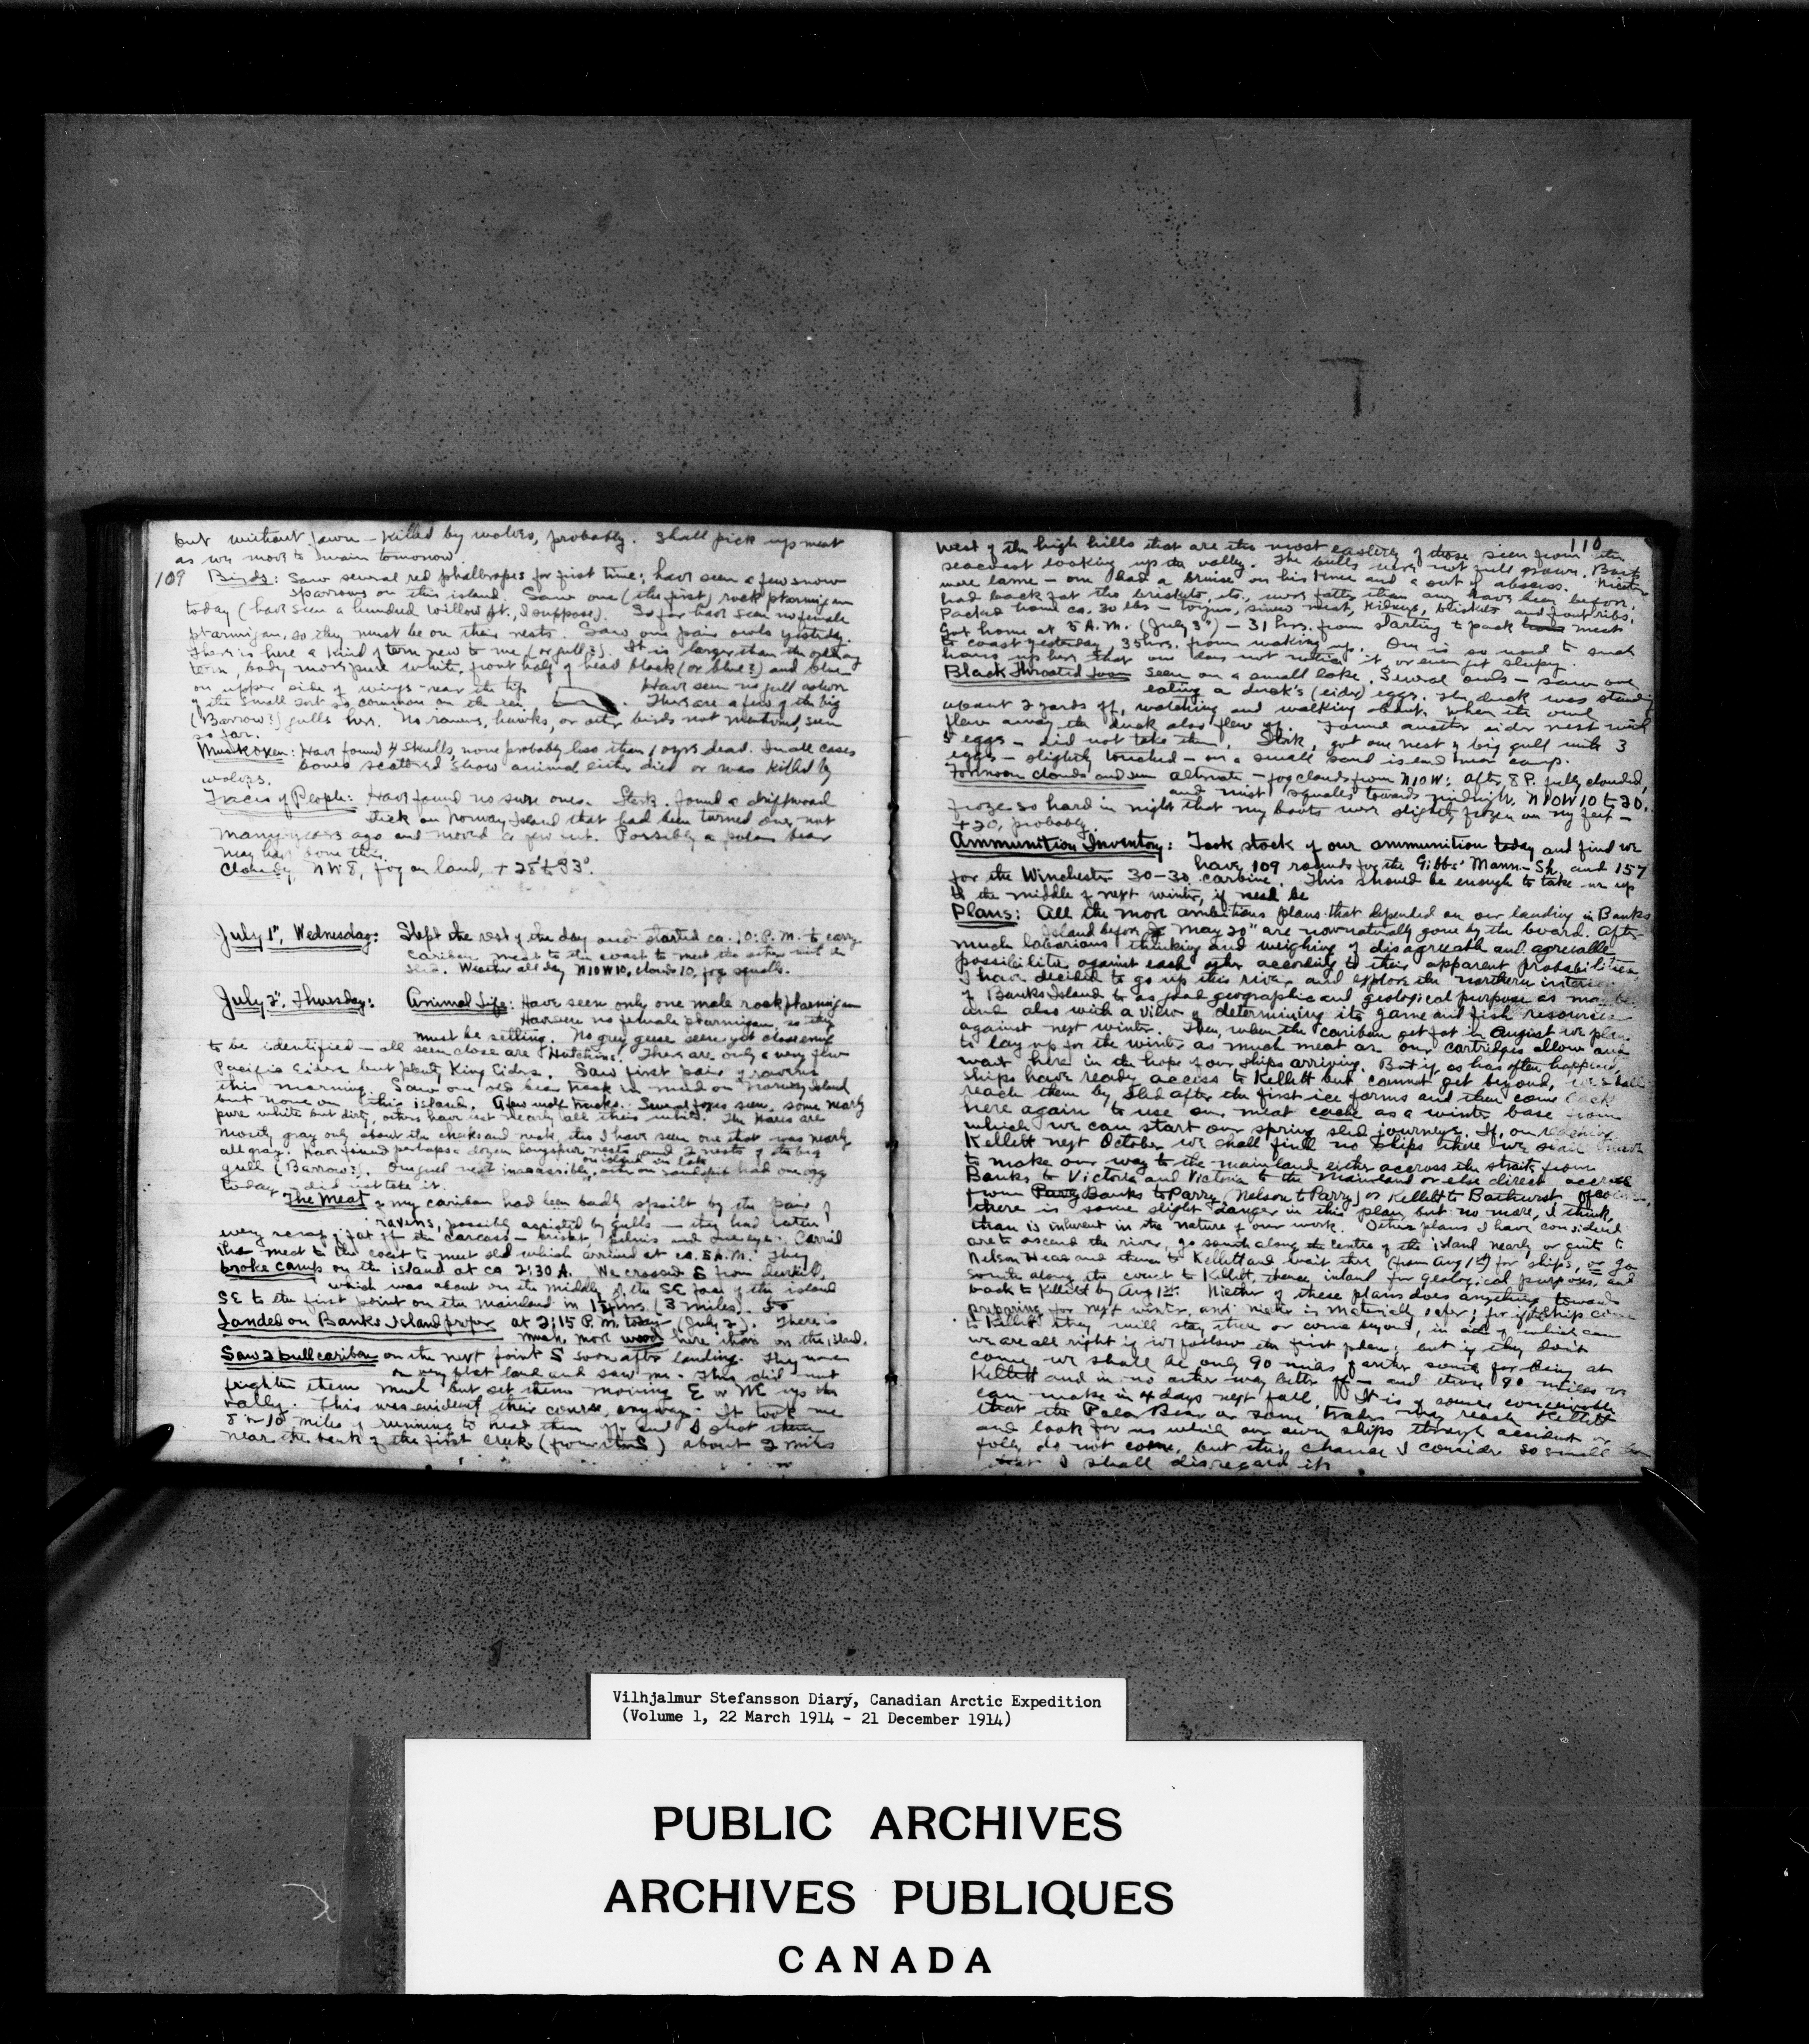 but without fawn – killed by wolves, probably. Shall pick up meat
as we move to main tomorrow
109 Birds: Saw several red phallropes for first time; have seen a few snow
sparrows on this island. Saw one (the first) rock ptarmigan
today (have seen a hundred willow pt., I suppose). So far have seen no female
ptarmigan, so they must be on their nests. Saw one pair owls yesterday.
There is here a kind of tern new to me (or gull?). It is larger than the ordinary
tern, body more pure white, front half of head black (or blue?) and blue
on upper side of wings near the tip. Have seen no gull as how
of the small sort so common on the ice. There are a few of the big
(Barrow?) gulls here. No ravens, hawks, or other birds not mentioned, seen
so far.
Musk oxen: Have found 4 skulls, none probably less than 10 yrs dead. In all cases
bones scattered, show animal either died or was killed by
wolves.
Traces of People: Have found no sure ones. Stork. found a driftwood
stick on Norway Island that had been turned over not
many years ago and moved a few out. Possibly a polar bear
may have done this.
Cloudy, NW 8, fog on land, +28° to 33°.
July 1", Wednesday: Slept the rest of the day and started ca. 10: P.M. to carry
caribou meat to the coast to meet the others with the
sled. Weather all day N10W10, clouds 10, fog squalls.
July 2", Thursday: Animal Life: Have seen only one male rock ptarmigan
Have seen no female ptarmigan, so they
must be setting. No grey geese seen yet close enough
to be identified – all seen close are Hutchins. There are only a very few
Pacific Eiders but plenty King Eiders. Saw first pair of ravens
this morning. Saw one old bear track in mud on Norway Island
but none on this island. A few wolf tracks. Several foxes seen, some nearly
pure white but dirty, others have lost nearly all their white. The Hares are
mostly gray only about the cheeks and neck, tho I have seen one that was nearly
all gray. Have found perhaps a dozen longspur nests and 2 nests of the big
gull (Barrow?). One gull nest inaccessible, on island in lake other on sandspit had one egg
today – did not take it.
The Meat of my caribou had been badly spoilt by the pair of
ravens, possibly assisted by gulls – they had eaten
every scrap of fat off the carcass – brisket, pelvis and one eye. Carried
the meat to the coast to meet sled which arrived at ca. 5 A.M. They
broke camp on the island at ca 2:30 A. We crossed S from
which was about on the middle of the SE face of the island
SE to the first point on the mainland in 1½ hrs. (3 miles). So
Landed on Banks Island proper at 2:15 P.M. today (July 2). There is
much more wood here than on the island.
Saw 2 bull caribou on the next point S soon after landing. They were
on very flat land and saw me. This did not
frighten them much but set them moving E or NE up the
valley. This was evidently their course, anyway. It took me
8 or 10 miles of running to head them off and I shot them
near the bank of the first creek (from the S) about 2 miles
110
West of the high hills that are the most easterly of those seen from the
seacoast looking up the valley. The bulls were not full grown. Both
were lame – one had a bruise on his knee and a sort of abscess. Neither
had back fat tho briskets, etc., were fatter than any have been before.
Packed home ca. 30 lbs – tongue, sinew meat, kidneys, briskets and front ribs.
Got home at 5 A.M. (July 3") – 31 hrs. from starting to pack meat
to coast yesterday, 35 hrs. from waking up. One is so used to such
hours up here that one does not notice it or even get sleepy.
Black throated loon seen on a small lake. Several owls – saw one
eating a duck's (eider) eggs. The duck was standing
about 2 yards off, watching and walking about. When the owl
flew away the duck also flew off. Found another eider nest with
5 eggs – did not take them. Stork. got one nest of big gull with 3
eggs – slightly touched – on a small sand island near camp.
Forenoon clouds and sun alternate – fog clouds from N10W: after 8 P. fully clouded,
and mist squalls towards midnight. N10W 10 to 20.
froze so hard in night that my boots were slightly frozen on my feet –
+20, probably.
Ammunition Inventory: Took stock of our ammunition today and find we
have 109 rounds for the Gibbs' Mann.-Sh. and 157
for the Winchester 30–30 carbine. This should be enough to take us up
to the middle of next winter, if need be
Plans: All the more ambitious plans that depended on our landing in Banks
Island before May 20" are now naturally gone by the board. After
much laborious thinking and weighing of disagreeable and agreeable
possibilities against each other according to their apparent probabilities,
I have decided to go up this river and explore the northern interior
of Banks Island to as good geographic and geological purpose as may be
and also with a view of determining its game and fish resources
against next winter. Then, when the caribou get fat in August we plan
to lay up for the winter as much meat as our cartridges allow and
wait here in the hope of our ships arriving. But if, as has often happened,
ships have ready access to Kellett but cannot get beyond, we shall
reach them by sled after the first ice forms and then come back
here again to use our meat cache as a winter base from
which we can start our spring sled journeys. If, on reaching
Kellett next October we shall find no ships there we shall have
to make our way to the mainland either accross the straits from
Banks to Victoria and Victoria to the Mainland or else direct accross
from Banks to Parry (Nelson to Parry) or Kellett to Bathurst. Of course
there is some slight danger in this plan but no more, I think,
than is inherent in the nature of our work. Other plans I have considered
are to ascend the river, go south along the centre of the island nearly or quite to
Nelson Head and thence to Kellett and wait there (from Aug 1st) for ships, or go
south along the coast to Kellett, thence inland for geological purposes, and
back to Kellett by Aug 1st. Niether of these plans does anything towards
preparing for next winter, and niether is materially safer; for if the ships come
to Kellett they will stay there or come beyond, in either of which case
we are all right if we follow the first plan; but if they don't
come we shall be only 90 miles farther south for being at
Kellett and in no other way better off – and those 90 miles we
can make in 4 days next fall. It is of course conceivable
that the Polar Bear or some trader may reach Kellett
and look for us while our own ships through accident or
folly do not come, but this chance I consider so small
that I shall disregard it.
Vilhjalmur Stefansson Diary, Canadian Arctic Expedition
(Volume 1, 22 March 1914 - 21 December 1914)
PUBLIC ARCHIVES
ARCHIVES PUBLIQUES
CANADA